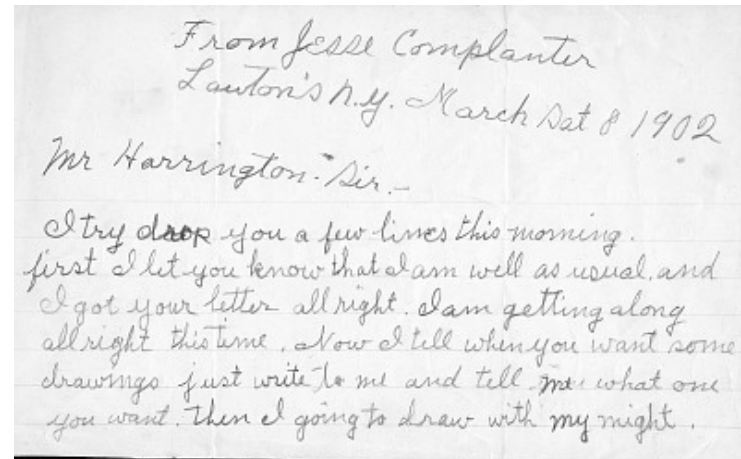 From Jesse Complanter
Lawton's N.Y. March Sat 8 1902
Mr Harrington. Sir.-
I try drop you a few lines this morning.
first I let you know that I am well as usual. and
I got your letter all right. I am getting along
all right this time. Now I tell when you want some
drawings just write to me and tell me what one
you want. Then I going to draw with my might.